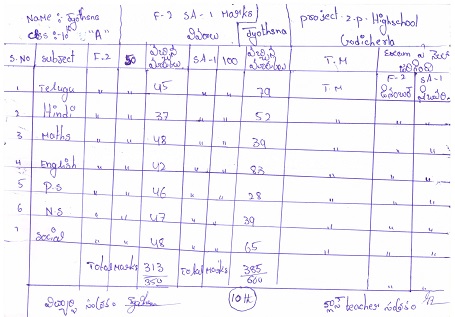 Name : Jyothsna F-2 SA-1 Marks Jyothsna project - z.p. Highschool
class :- 10 "A" వివరాలు Godicherla
S.No Subject F-2 50 SA-1 100 T.M
F-2 SA-1
1 Telugu " " 45 " " 79 T.M
2 Hindi " " 37 " " 52 " " "
3 Maths " " 48 " " 39 " " "
4 English " " 42 " " 83 " " "
5 P.S " " 46 " " 28 " " "
6 N.S " " 47 " " 39 " " "
7 Social " " 48 " " 65 " " "
Total Marks 313 Total Marks 385
350 600
విద్యార్థి సంతకం (10th) క్లాస్ teacher సంతకం